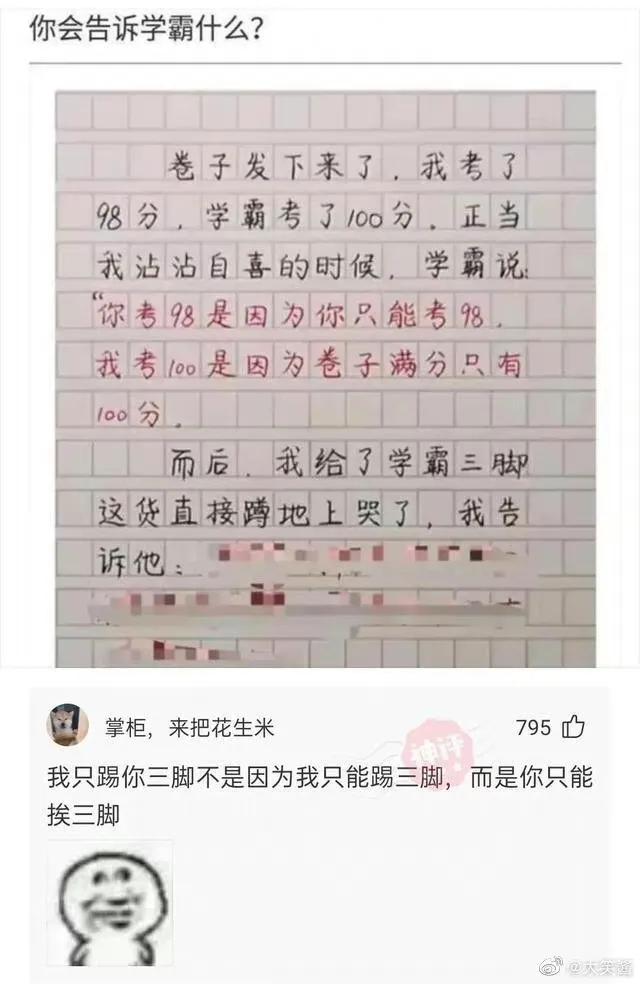 你会告诉学霸什么？
卷子发下来了，我考了
98分，学霸考了100分。正当
我沾沾自喜的时候，学霸说：
“你考98是因为你只能考98，
我考100是因为卷子满分只有
100分。
而后，我给了学霸三脚
这货直接蹲地上哭了，我告
诉他：
掌柜，来把花生米
795
神评
我只踢你三脚不是因为我只能踢三脚，而是你只能
挨三脚
@大笑酱